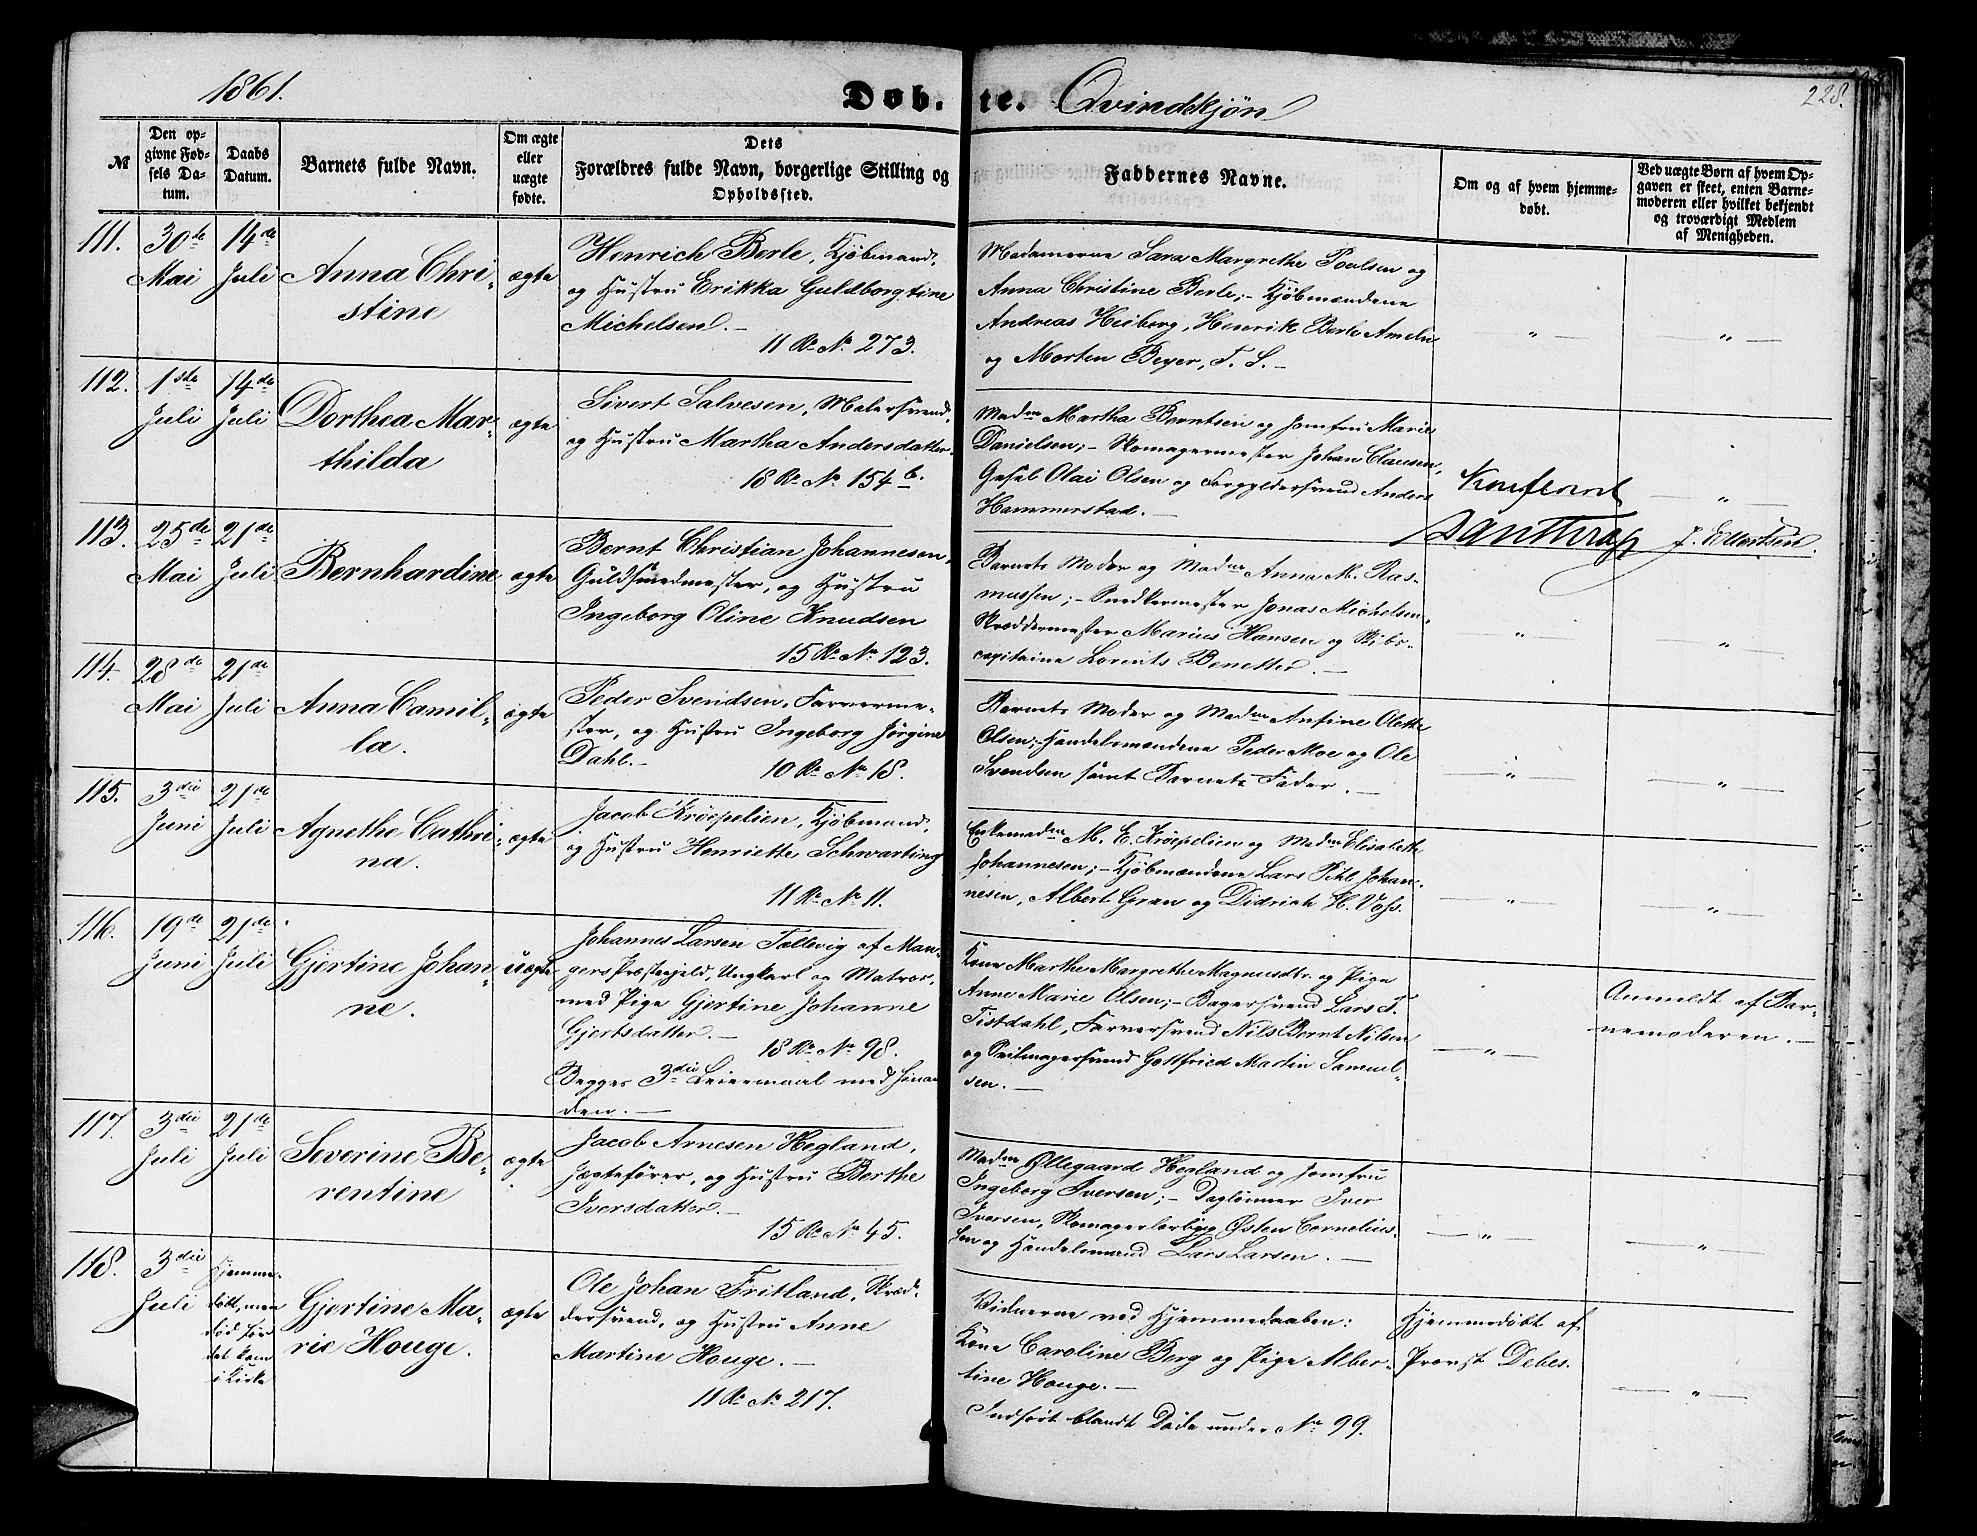 1861.
Døb. te. Qvindekjøn
228.
№
Den op-
givne Fød-
sels Da-
tum.
Daabs
Datum.
Barnets fulde Navn.
Om ægte
eller
uægte
fødte.
Dets
Forældres fulde Navn, borgerlige Stilling og
Opholdssted.
Faddernes Navne.
Om og af hvem hjemme-
døbt.
Ved uægte Børn af hvem Op-
gaven er skeet, enten Barne-
moderen eller hvilket bekjendt
og troværdigt Medlem
af Menigheden.
111.
30te
Mai
14de
Juli
Anna Chri-
stine
ægte
Henrich Berle, Kjøbmand,
og Hustru Erikka Guldborgtine
Michelsen. —
11 R. No. 273.
Madamerne Sara Margrethe Poulsen og
Anna Christine Berle; - Kjøbmændene
Andreas Heiberg, Henrik Berle Ameln
og Morten Beyer, T. S. —
— " —
— " —
112.
1ste
Juli
14de
Juli
Dorthea Mar-
thilda
ægte
Sivert Salvesen, Malersvend,
og Hustru Martha Andersdatter.
18 R. No. 154 b.
Madme Martha Berntsen og Jomfru Marie
Danielsen; - Skomagermester Johan Clausen,
Gesel Olai Olsen og Forgyldersvend Anders
Hammerstad. —
Konferert
— " —
113.
25de
Mai
21de
Juli
Bernhardine
ægte
Bernt Christian Johannesen,
Guldsmedmester, og Hustru
Ingeborg Oline Knudsen
15 R. No. 123.
Barnets Moder og Madme Anna M. Ras-
mussen; - Snedkermester Jonas Michelsen,
Skræddermester Marius Hansen og Skibs-
capitaine Lorents Benetter. —
"
— " —
114.
28de
Mai
21de
Juli
Anna Camil-
la.
ægte
Peder Svendsen, Farverme-
ster, og Hustru Ingeborg Jørgine
Dahl. —
10 R. No. 18.
Barnets Moder og Madme Anfine Olette
Olsen; - Handelsmændene Peder Moe og Ole
Svendsen samt Barnets Fader. —
— " —
— " —
115.
3die
Juni
21de
Juli
Agnethe Cathri-
na.
ægte
Jacob Krøepelien, Kjøbmand,
og Hustru Henriette Schwarting
11 R. No. 11.
Enkemadme M. E. Krøepelien og Madme Elisabeth
Johannesen; - Kjøbmændene Lars Pihl Johan-
nesen, Albert Gran og Didrich H. Voss.
— " —
— " —
116.
19de
Juni
21de
Juli
Gjertine Johan-
ne.
uægte
Johannes Larsen Tellevig af Man-
gers Præstegjeld, Ungkarl og Matros,
med Pige Gjertine Johanne
Gjertsdatter. —
18 R. No. 98.
Begges 3die Leiermaal med hinan-
den. —
Kone Marthe Margrethe Magnusdtr. og Pige
Anne Marie Olsen; - Bagersvend Lars T.
Tistdahl, Farversvend Nils Bernt Nilsen
og Seilmagersvend Gottfried Martin Samuel-
sen. —
— " —
Anmeldt af Bar-
nemoderen. —
117.
3die
Juli
21de
Juli
Severine Be-
rentine
ægte
Jacob Arnesen Hegland,
Jægtefører, og Hustru Berthe
Iversdatter. —
15 R. No. 45.
Madme Øllegaard Hegland og Jomfru
Ingeborg Iversen; - Daglønner Iver
Iversen, Skomagerlærling Østen Cornelius-
sen og Handelsmand Lars Larsen. —
— " —
— " —
118.
3die
Juli
Hjemme-
døbt, men
død før
det kom
i Kirke
Gjertine Ma-
rie Houge.
ægte
Ole Johan Fritland, Skræd-
dersvend, og Hustru Anne
Martine Houge. —
11 R. No. 217.
Vidnerne ved Hjemmedaaben:
Kone Caroline Berg og Pige Alber-
tine Houge. —
Indført blandt Døde under No. 99.
Hjemmedøbt af
Provst Debes.
— " —